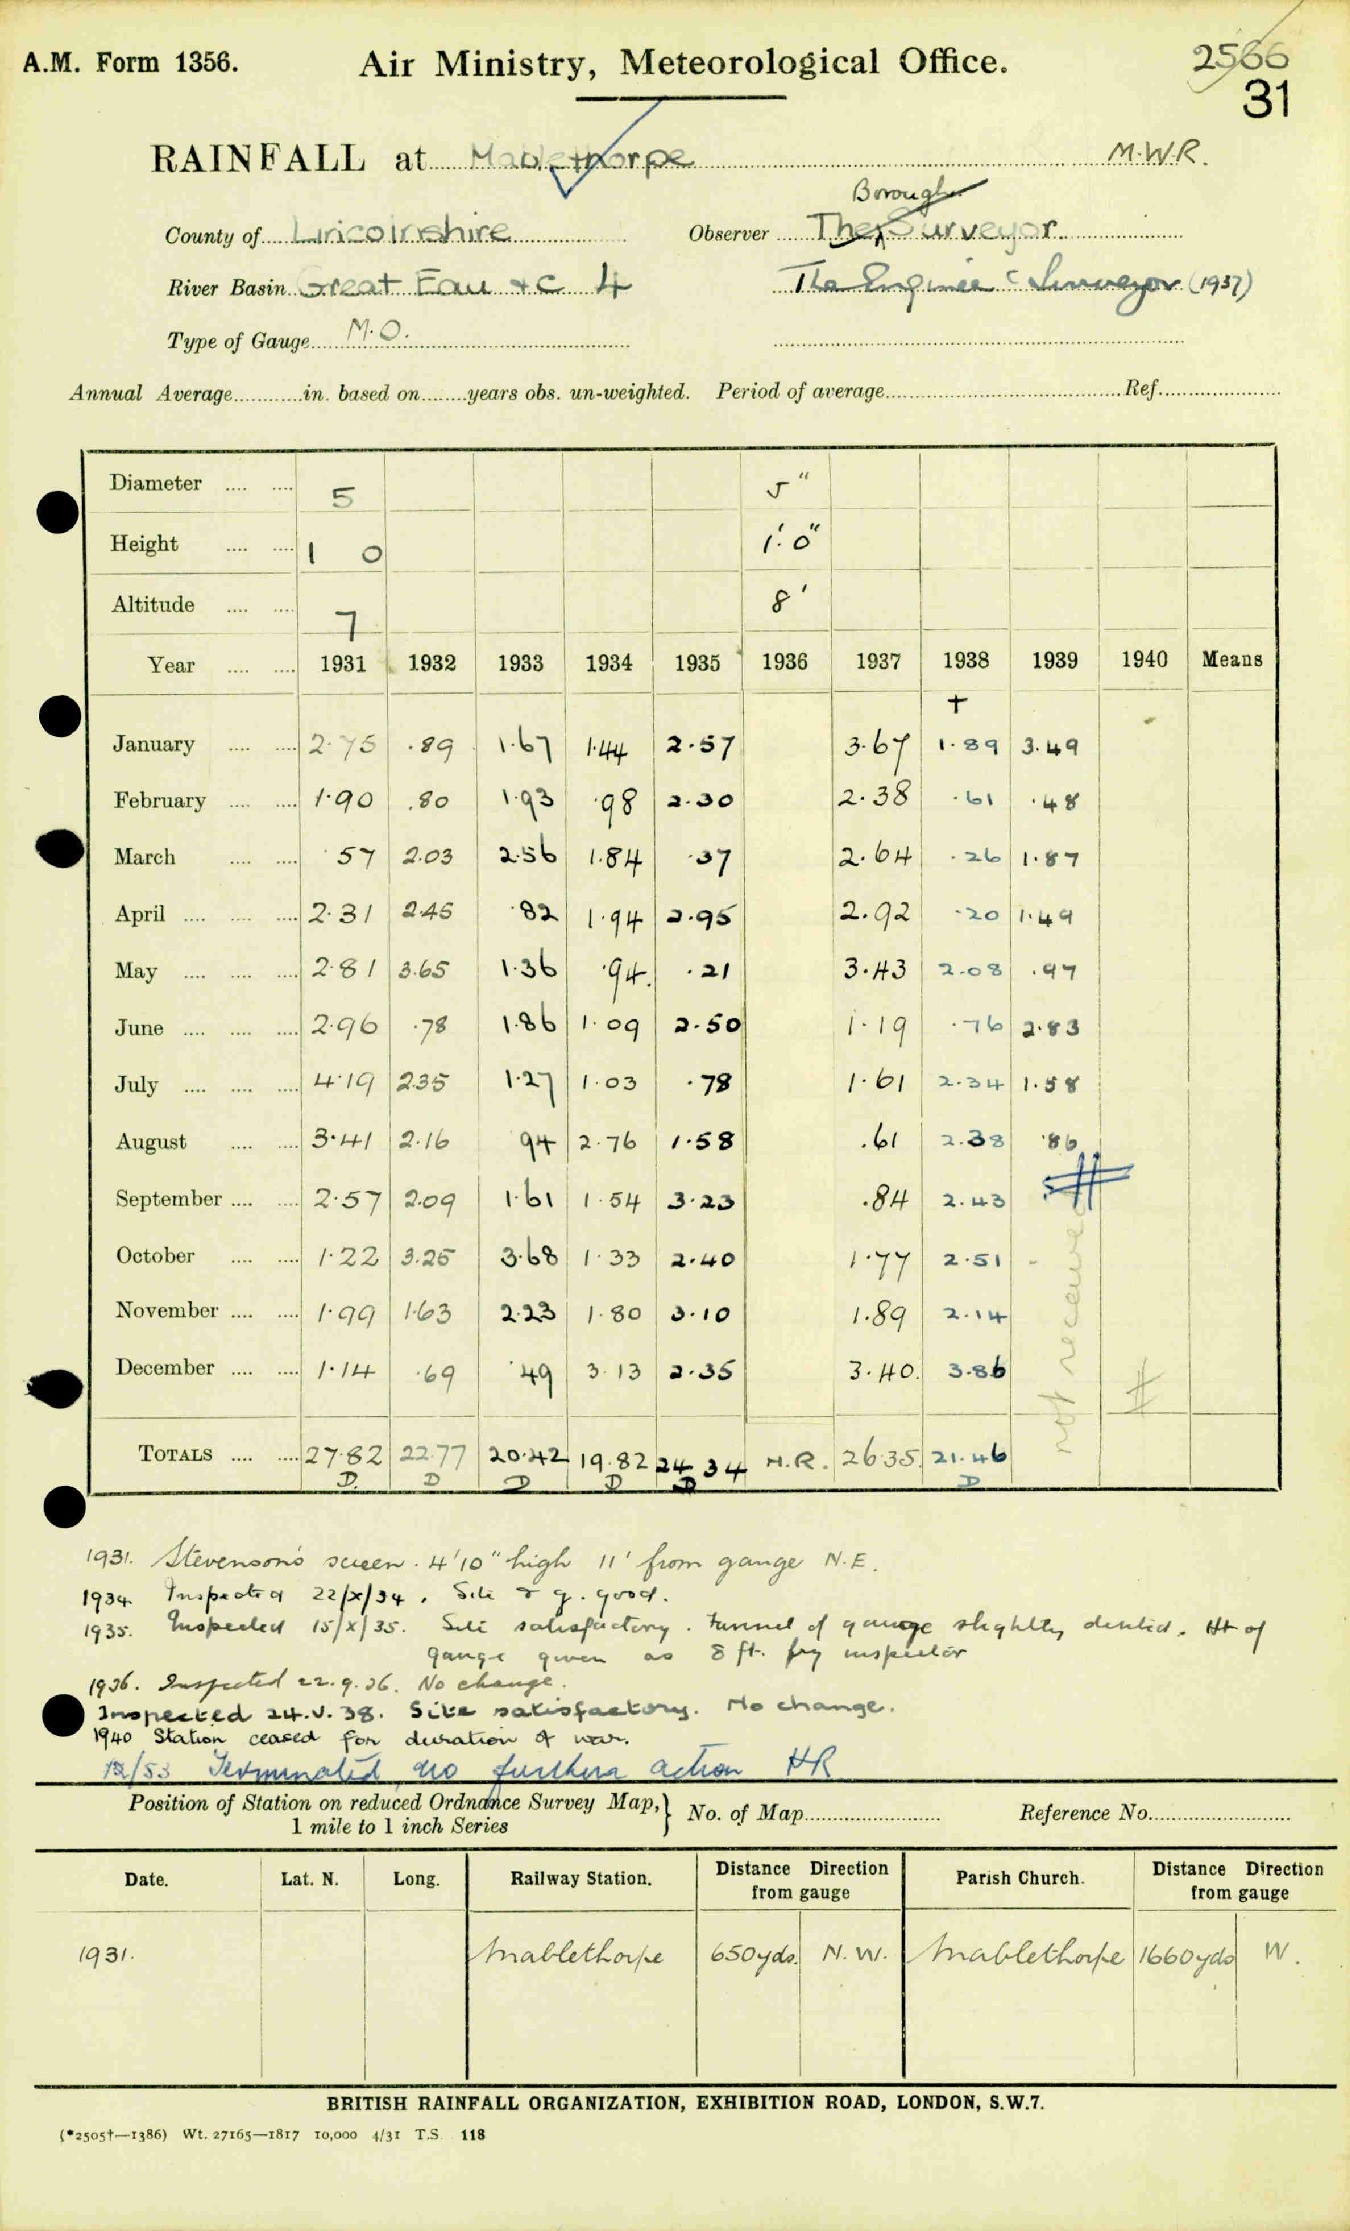 A.M. Form 1356. Air Ministry, Meteorological Office. 2566
31
RAINFALL at Mablethorpe M.W.R.
Borough
County of Lincolnshire Observer The Surveyor
River Basin Great Eau &c 4 The Engineer & Surveyor (1937)
Type of Gauge M.O.
Annual Average in. based on years obs. un-weighted. Period of average Ref.
Diameter 5 5"
Height 1 0 1'.0"
Altitude 7 8'
Year 1931 1932 1933 1934 1935 1936 1937 1938 1939 1940 Means
†
January 2.75 .89 1.67 1.44 2.57 3.67 1.89 3.49
February 1.90 .80 1.93 .98 2.30 2.38 .61 .48
March .57 2.03 2.56 1.84 .37 2.64 .26 1.87
April 2.31 2.45 .82 1.94 2.95 2.92 .20 1.49
May 2.81 3.65 1.36 .94 .21 3.43 2.08 .97
June 2.96 .78 1.86 1.09 2.50 1.19 .76 2.83
July 4.19 2.35 1.27 1.03 .78 1.61 2.34 1.58
August 3.41 2.16 .94 2.76 1.58 .61 2.38 .86
September 2.57 2.09 1.61 1.54 3.23 .84 2.43
October 1.22 3.25 3.68 1.33 2.40 1.77 2.51 -
November 1.99 1.63 2.23 1.80 3.10 1.89 2.14
December 1.14 .69 .49 3.13 2.35 3.40 3.86
not received
TOTALS 27.82 22.77 20.42 19.82 24.34 N.R. 26.35 21.46
D. D D D D D
1931. Stevenson's screen. 4'10" high 11' from gauge N.E.
1934 Inspected 22/x/34. Site & g. good.
1935. Inspected 15/X/35. Site satisfactory. Funnel of gauge slightly dented. Ht of
gauge given as 8 ft. by inspector
1936. Inspected 22.9.36. No change.
Inspected 24.V.38. Site satisfactory. No change.
1940 Station ceased for duration of war.
12/53 Terminated, no further action HR
Position of Station on reduced Ordnance Survey Map, 1 mile to 1 inch Series } No. of Map Reference No.
Date. Lat. N. Long. Railway Station. Distance Direction from gauge Parish Church. Distance Direction from gauge
1931. Mablethorpe 650yds. N.W. Mablethorpe 1660yds W.
BRITISH RAINFALL ORGANIZATION, EXHIBITION ROAD, LONDON, S.W.7.
(*2505†—1386) Wt. 27165—1817 10,000 4/31 T.S. 118